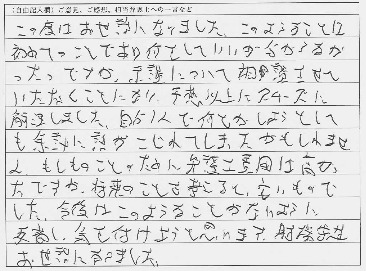 (自由記入欄)ご意見、ご感想、担当弁護士への一言など
この度はお世話になりました。このようなことは
初めてのことであり何をしていいか分からなか
ったですが、弁護について相談させて
いただくことになり、予想以上にスムーズに
解決しました。自分1人で何とかしようとして
も余計に話がこじれてしまったかもしれませ
ん。もしものことのために弁護士費用は高かっ
たですが、将来のことを考えると、安いもので
した。今後はこのようなことがないように
反省し、気を付けようと思います。
お世話になりました。